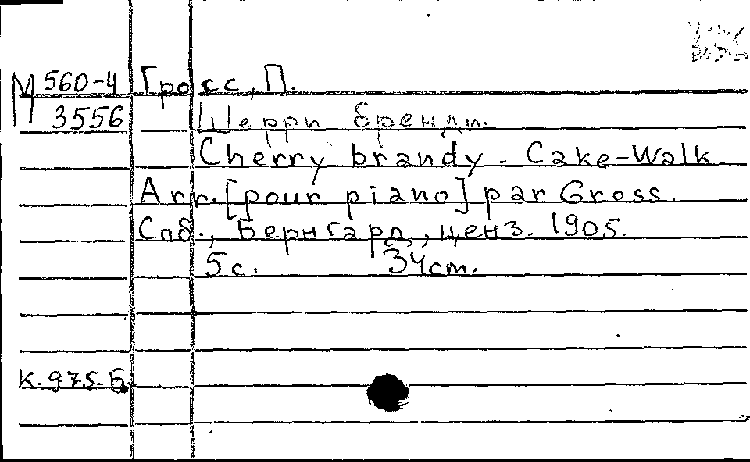 М 560-4 Гросс, П.
3556 Шерри бренди.
Cherry brandy - Cake-Walk
Arr. [pour piano] par Gross.
Спб., Бернгард, ценз. 1905.
5 с. 34 cm.
К. 975. Б